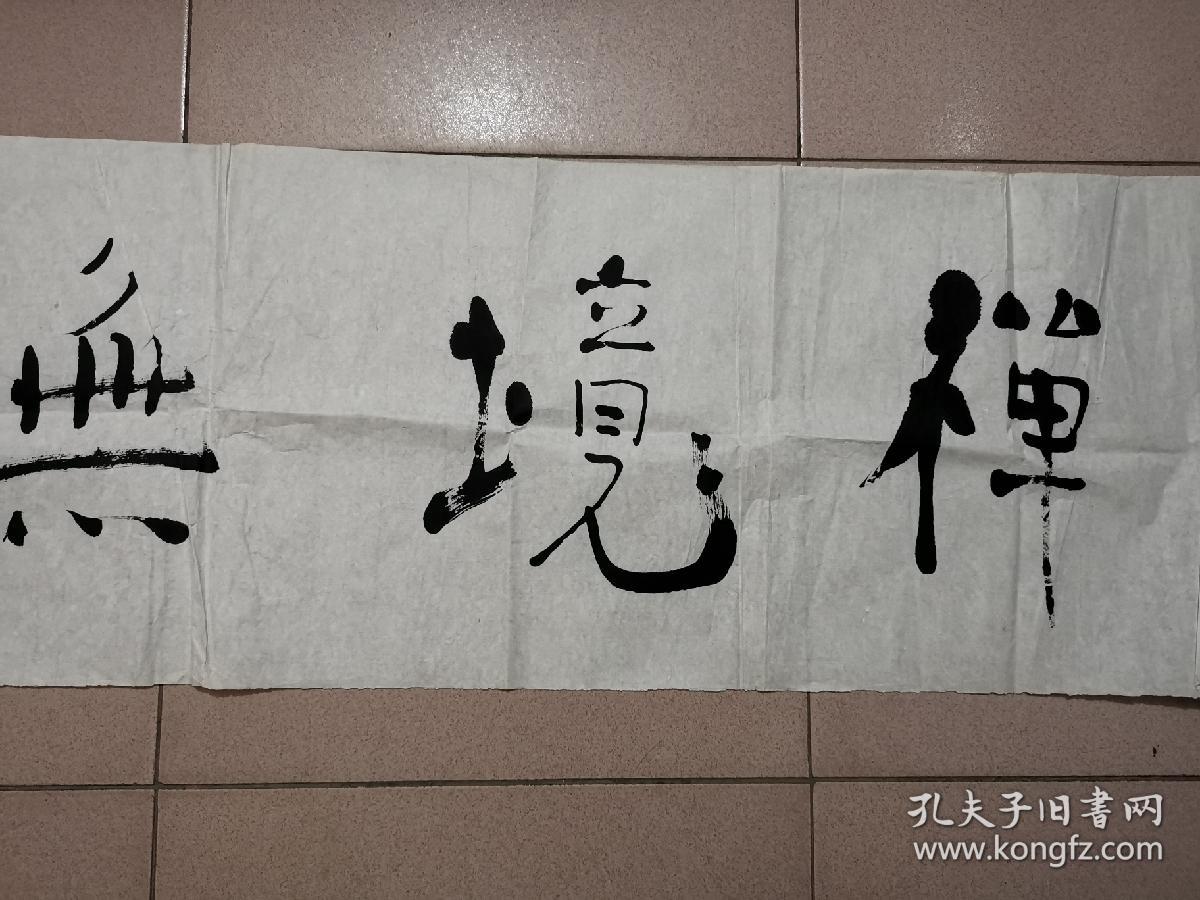 禪境無
孔夫子旧書网
www.kongfz.com